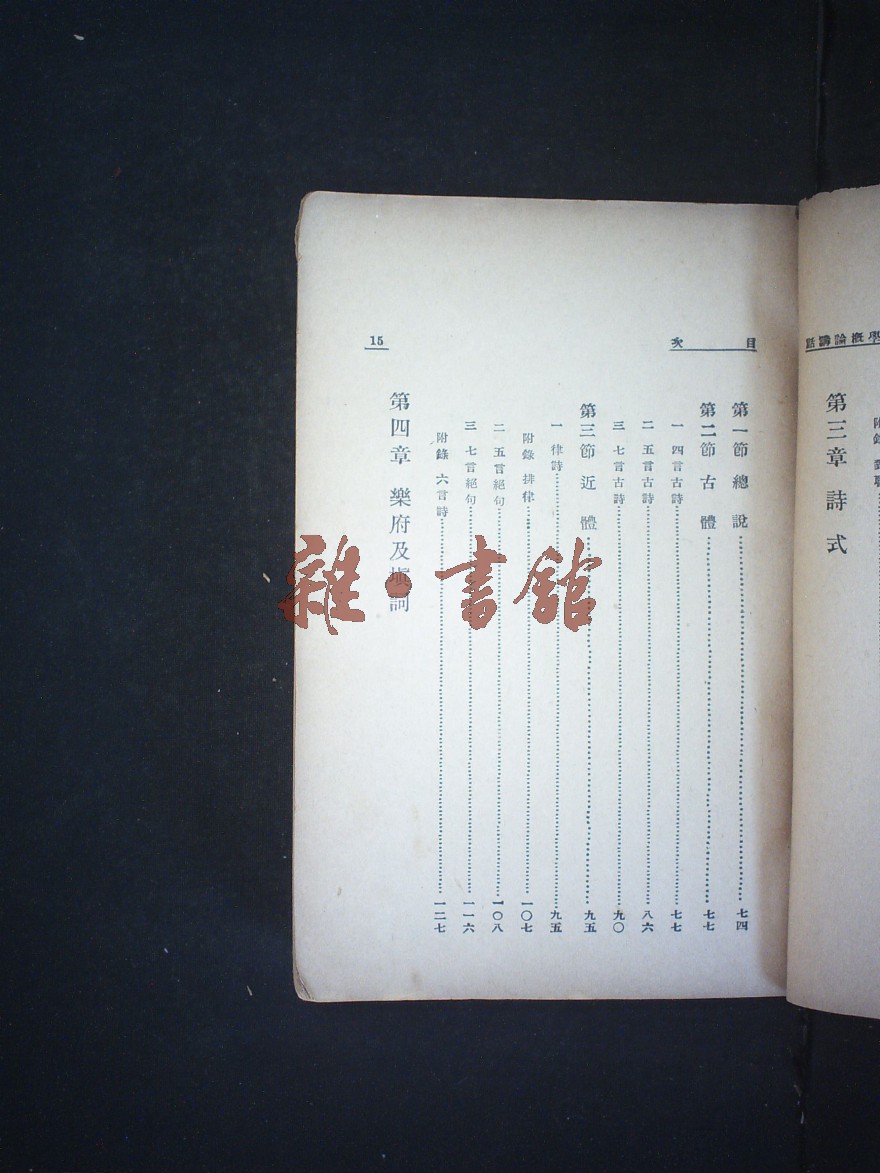 話講論概學
第三章 詩式
目次
15
第一節 總說 七四
第二節 古體 七七
一 四言古詩 七七
二 五言古詩 八六
三 七言古詩 九〇
第三節 近體 九五
一 律詩 九五
附錄 排律 一〇七
二 五言絕句 一〇八
三 七言絕句 一一六
附錄 六言詩 一二七
第四章 樂府及塡詞
雜·書館